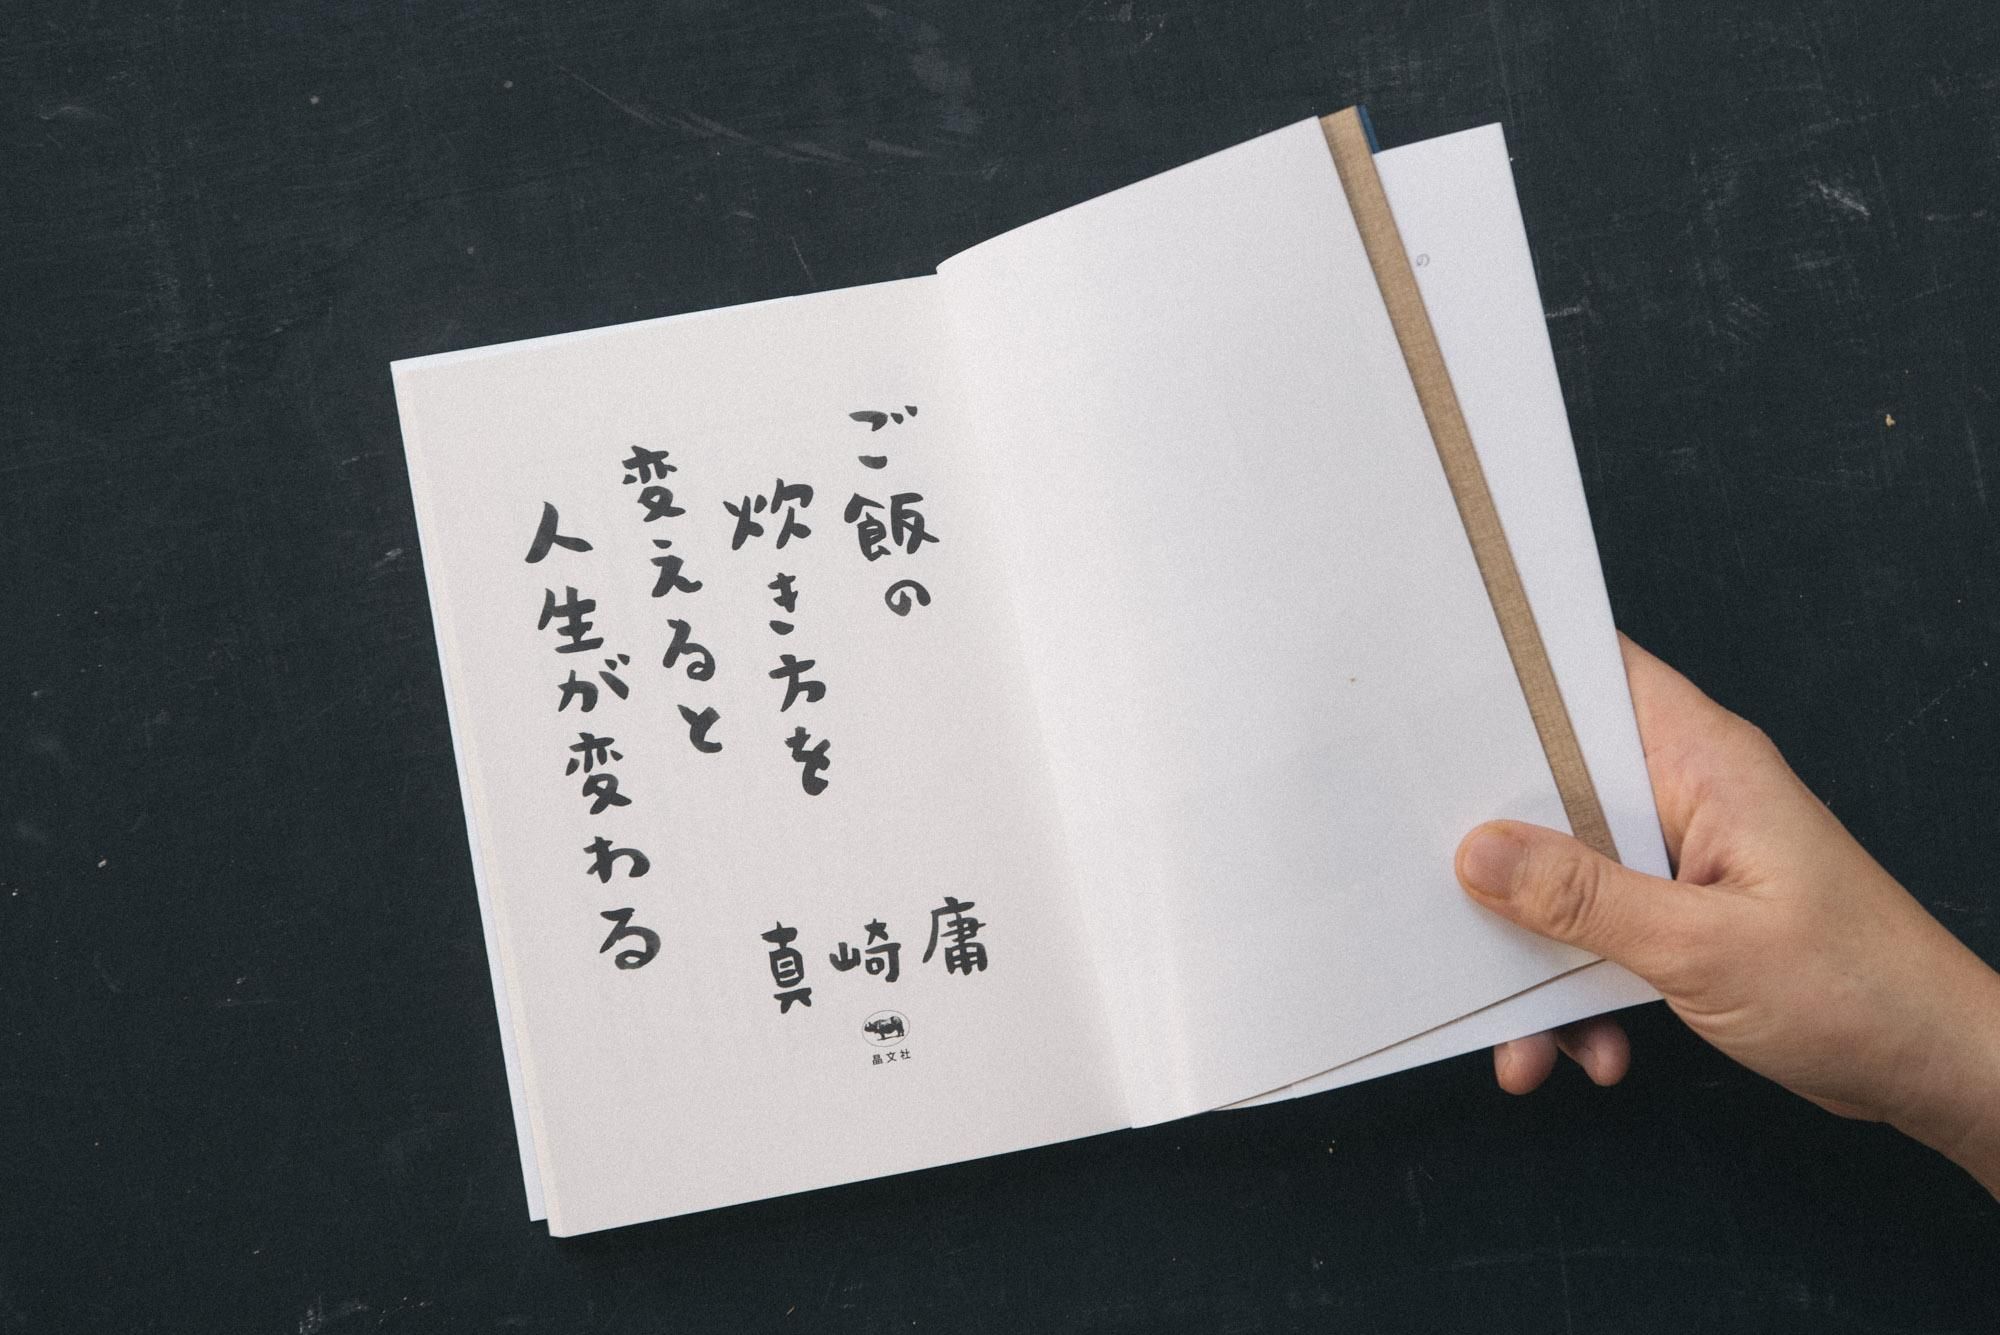 ご飯の
炊き方を
変えると
人生が変わる
真崎庸
晶文社
の